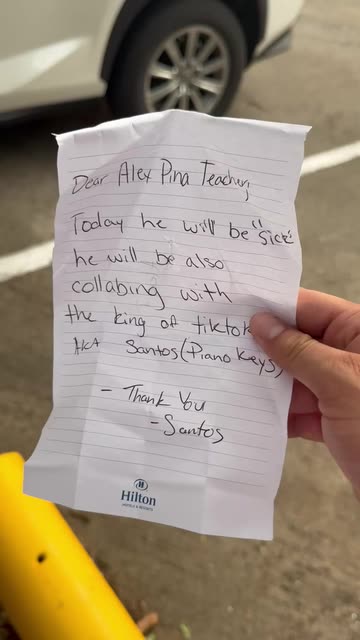 Dear Alex Pina Teacher,
Today he will be "sick"
he will be also
collabing with
the king of tiktok
AKA Santos (Piano Keys)
- Thank You
- Santos
Hilton
HOTELS & RESORTS